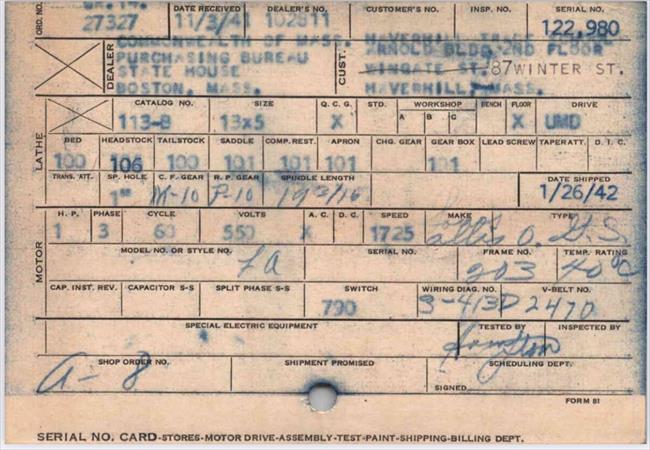 ORD. NO. DATE RECEIVED DEALER'S NO. CUSTOMER'S NO. INSP. NO. SERIAL NO.
27327 11/3/41 102811 122,980
DEALER COMMONWEALTH OF MASS. CUST. HAVERHILL TRADE
PURCHASING BUREAU ARNOLD BLDG 2ND FLOOR
STATE HOUSE WINGATE ST. 87 WINTER ST.
BOSTON, MASS. HAVERHILL MASS.
CATALOG NO. SIZE Q. C. G. STD. WORKSHOP BENCH FLOOR DRIVE
A B C
113-B 13x5 X X UMD
LATHE
BED HEADSTOCK TAILSTOCK SADDLE COMP. REST. APRON CHG. GEAR GEAR BOX LEAD SCREW TAPER ATT. D. I. C.
100 106 100 191 191 101 191
TRANS. ATT. SP. HOLE C. F. GEAR R. P. GEAR SPINDLE LENGTH DATE SHIPPED
1" M-10 P-10 19 3/16 1/26/42
H. P. PHASE CYCLE VOLTS A. C. D. C. SPEED MAKE TYPE
1 3 60 550 X 1725 Allis
MOTOR
MODEL NO. OR STYLE NO. SERIAL NO. FRAME NO. TEMP. RATING
203 40°C
CAP. INST. REV. CAPACITOR S-S SPLIT PHASE S-S SWITCH WIRING DIAG. NO. V-BELT NO.
790 3-413D 2470
SPECIAL ELECTRIC EQUIPMENT TESTED BY INSPECTED BY
SHOP ORDER NO. SHIPMENT PROMISED SCHEDULING DEPT.
A-8
SIGNED
FORM 81
SERIAL NO. CARD-STORES-MOTOR DRIVE-ASSEMBLY-TEST-PAINT-SHIPPING-BILLING DEPT.